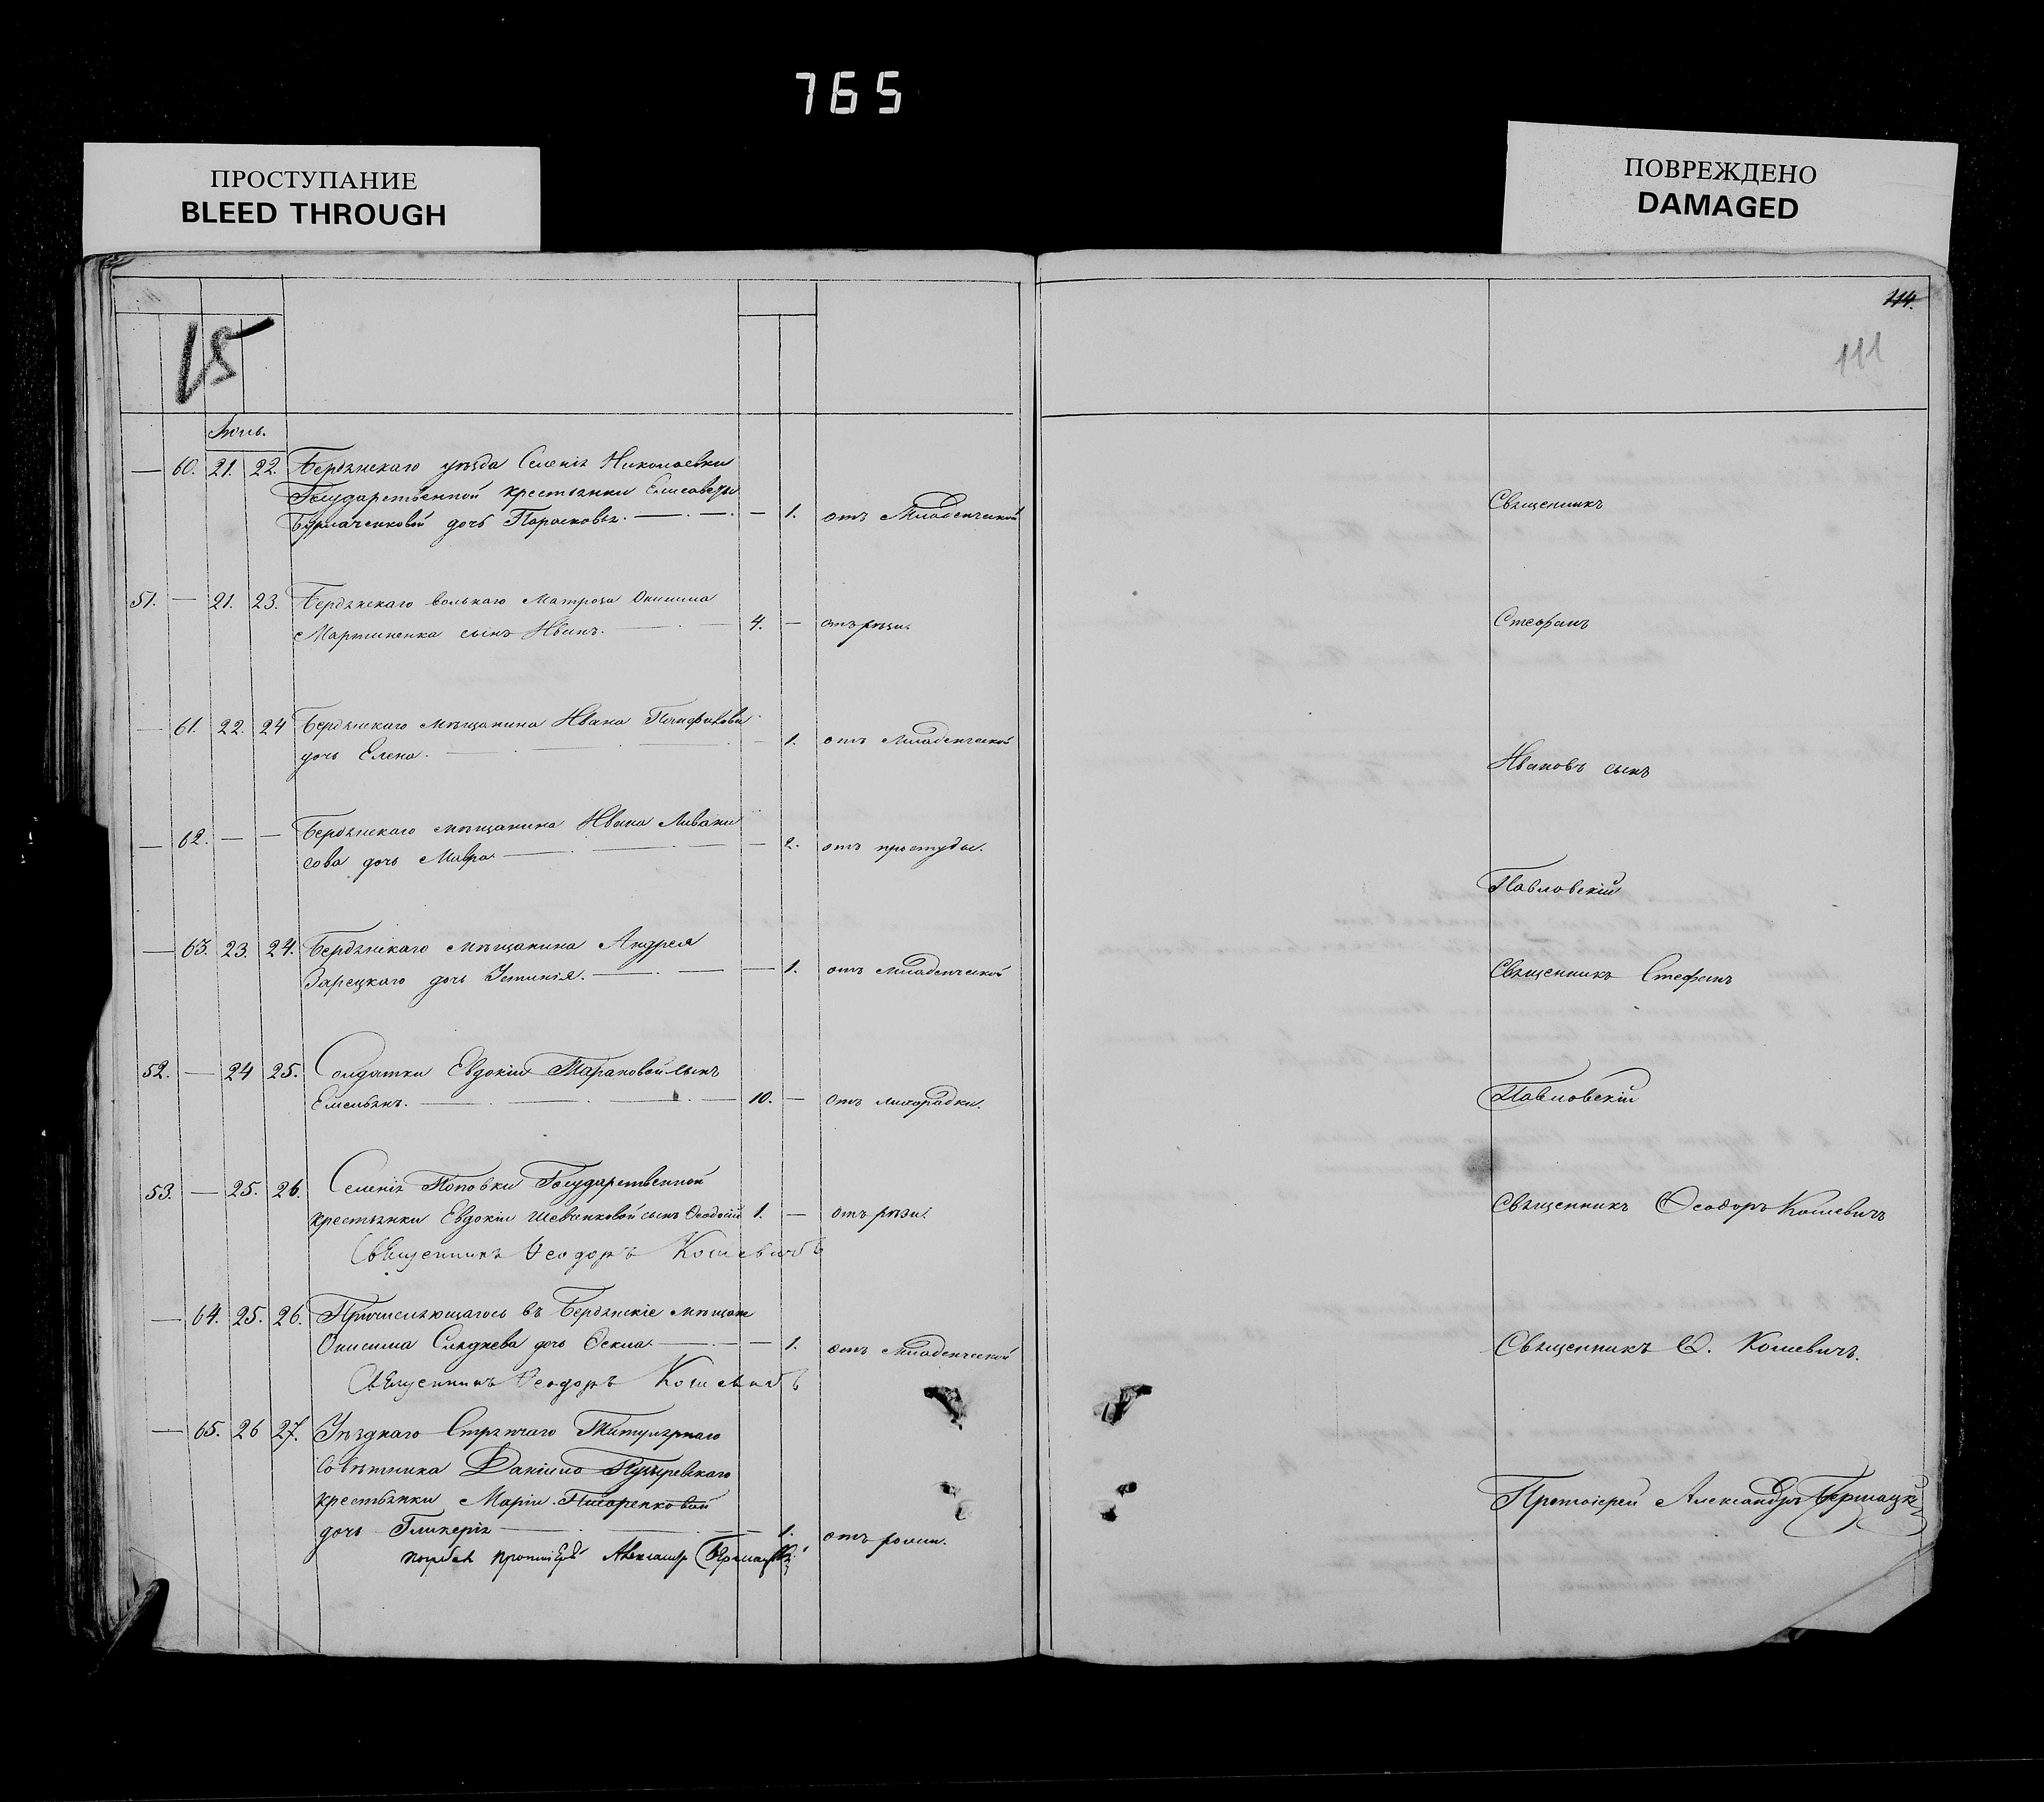 765
ПРОСТУПАНИЕ
BLEED THROUGH
ПОВРЕЖДЕНО
DAMAGED
114.
111
15
— 60. 21. 22. Бердянскаго уѣзда Селенія Николаевки
Государственной крестьянки Елисаветы
Бурлаченковой дочь Парасковья. — 1. отъ Младенческой
Священникъ
51. — 21. 23. Бердянскаго вольнаго Матроза Онисима
Мартиненка сынъ Иванъ. 4. — отъ рѣзи.
Стефанъ
— 61. 22. 24 Бердянскаго мѣщанина Ивана Панфилова
дочь Елена. — 1. отъ Младенческой
Ивановъ сынъ
— 62. — — Бердянскаго мѣщанина Ивана Ливани
сова дочь Мавра — 2. отъ простуды.
Павловскій
— 63. 23. 24. Бердянскаго мѣщанина Андрея
Зарецкаго дочь Устинія. — 1. отъ Младенческой
Священникъ Стефанъ
52. — 24 25. Солдатки Евдокіи Тарановой сынъ
Емельянъ. 10. — отъ лихорадки.
Павловскій
53. — 25. 26. Селенія Поповки Государственной
крестьянки Евдокіи Шевченковой сынъ Ѳеодосій 1. — отъ рѣзи.
Священникъ Ѳеодоръ Кошевичъ
Священникъ Ѳеодоръ Кошевичъ
— 64. 25. 26. Причисляющагось въ Бердянскіе мѣщане
Онисима дочь Ѳекла. — 1. отъ Младенческой
Священникъ Ѳ. Кошевичъ.
Священникъ Ѳеодоръ Кошевичъ
— 65. 26 27. Уѣзднаго Стряпчаго Титулярнаго
Совѣтника Даніила Пузыревскаго
крестьянки Маріи Писаренковой
дочь Гликерія 1. отъ
Протоіерей Александръ
протоіерей Александръ